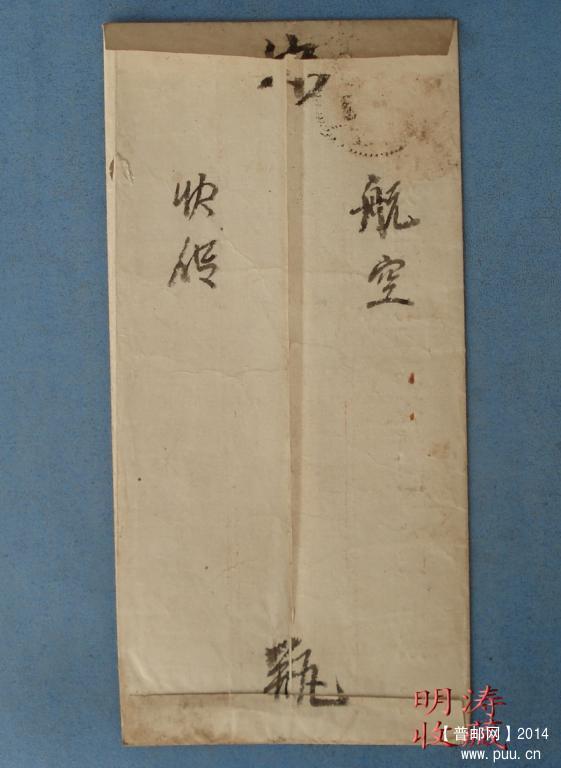 守
航空
快
瓶
明涛
收藏
【普邮网】2014
www.puu.cn